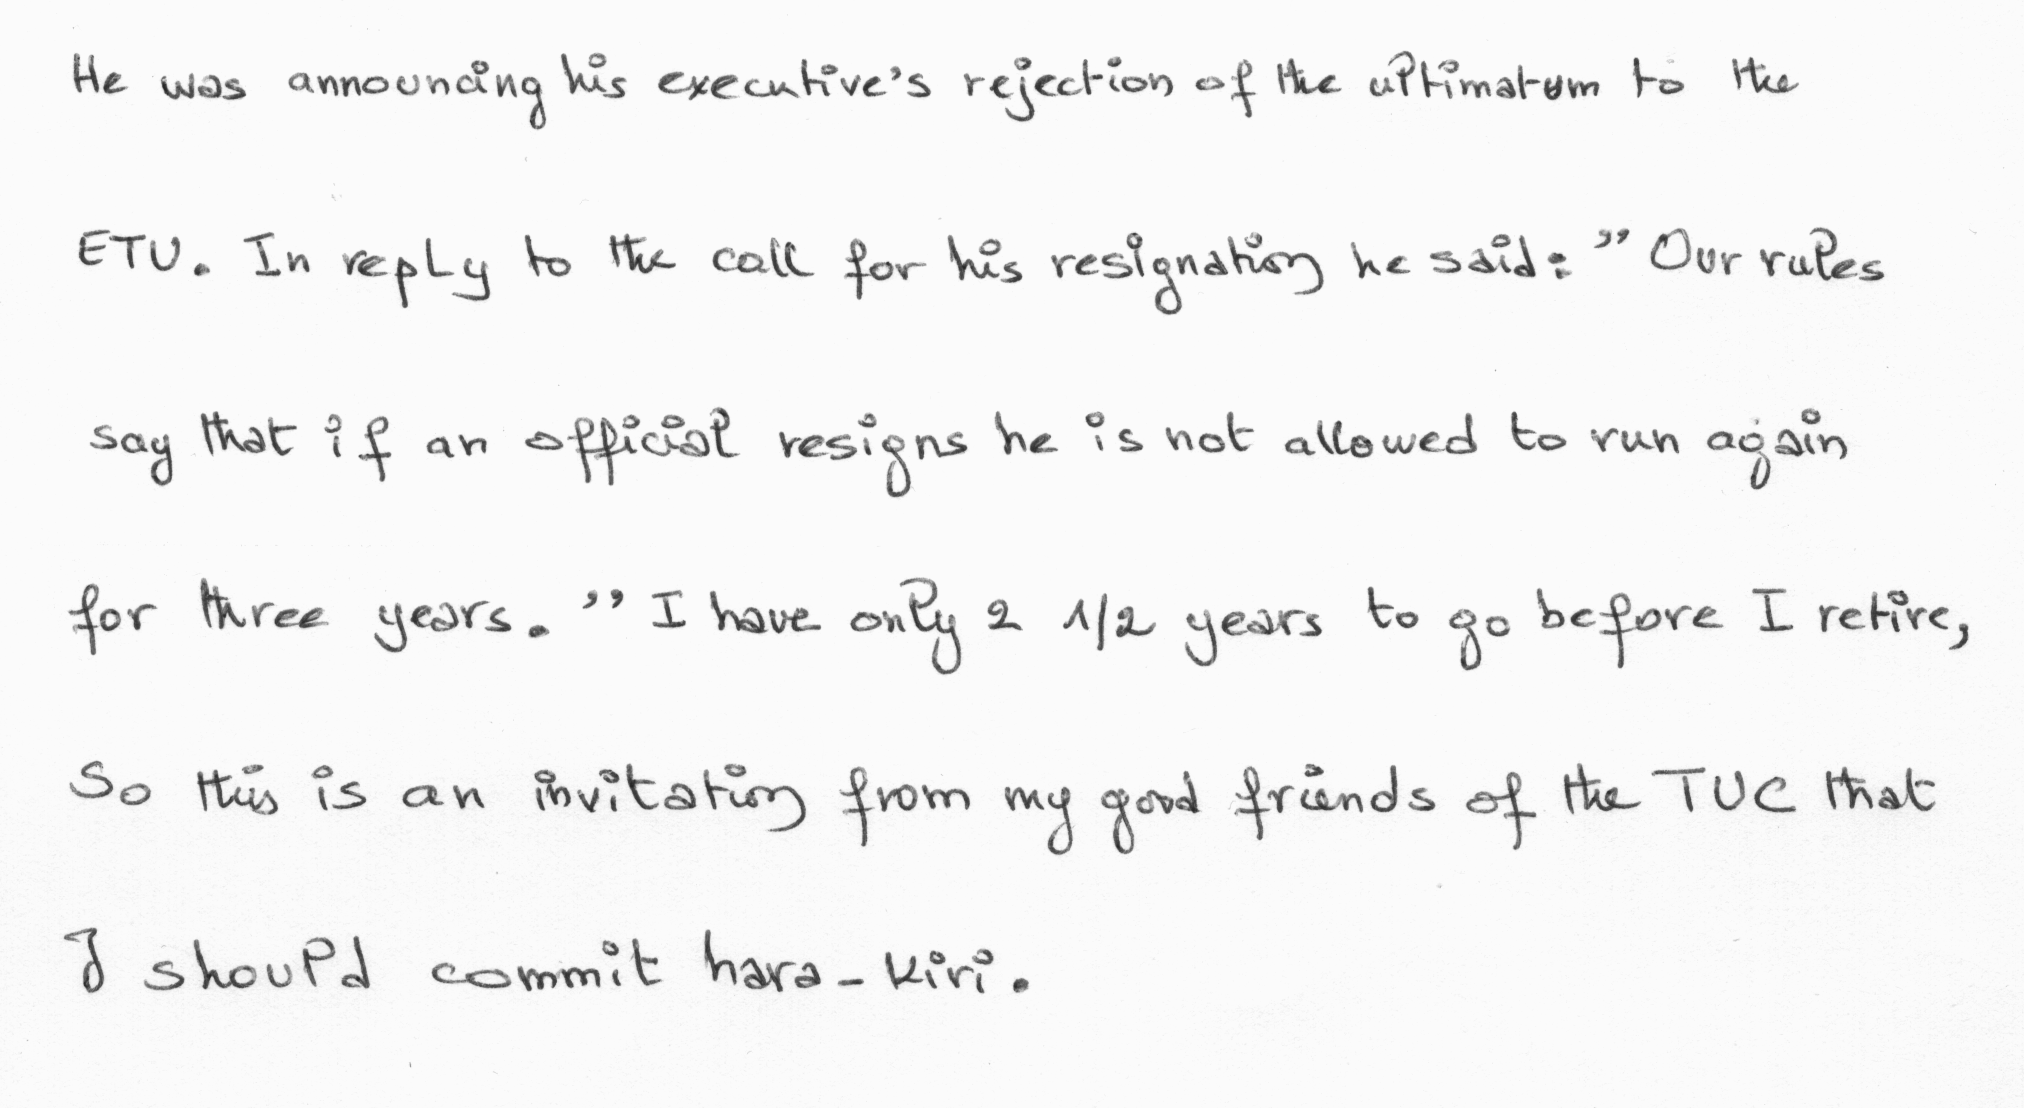 He was announcing his executive's rejection of the ultimatum to the
ETU. In reply to the call for his resignation he said: "Our rules
say that if an official resigns he is not allowed to run again
for three years. "I have only 2 1/2 years to go before I retire,
So this is an invitation from my good friends of the TUC that
I should commit hara-kiri.